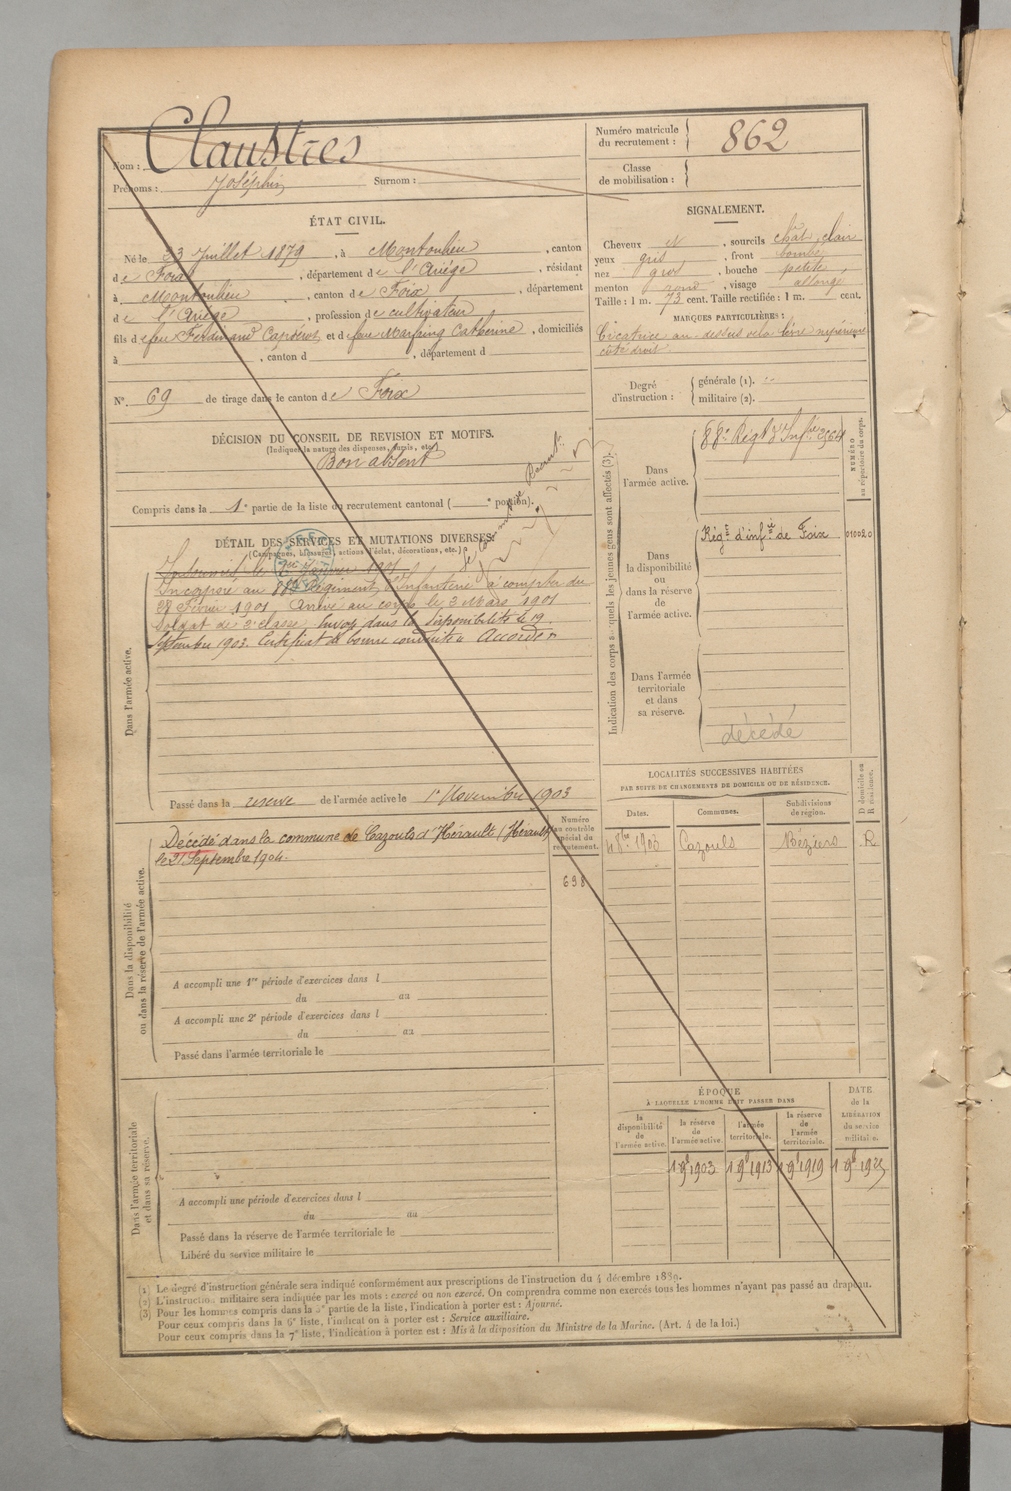 Nom : Claustres
Prénoms : Joséphin Surnom :
Numéro matricule du recrutement : 862
Classe de mobilisation :
ÉTAT CIVIL.
Né le 23 Juillet 1879, à Montoulieu, canton
de Foix, département de l'Ariège, résidant
à Montoulieu, canton de Foix, département
de l'Ariège, profession de cultivateur
fils de feu Ferdinand et de feu Catherine, domiciliés
à , canton d , département d
N° 69 de tirage dans le canton de Foix
SIGNALEMENT.
Cheveux et , sourcils chât. clair
yeux gris , front bombé
nez gros , bouche petite,
menton rond , visage allongé
Taille : 1 m. 73 cent. Taille rectifiée : 1 m. cent.
MARQUES PARTICULIÈRES :
Cicatrice au-dessus de la lèvre supérieure
côté droit.
Degré d'instruction : générale (1).
militaire (2).
DÉCISION DU CONSEIL DE REVISION ET MOTIFS.
(Indiquer la nature des dispenses, sursis, etc.)
Bon absent
Compris dans la 1e partie de la liste du recrutement cantonal ( e portion).
DÉTAIL DES SERVICES ET MUTATIONS DIVERSES.
(Campagnes, blessures, actions d'éclat, décorations, etc.)
Incorporé au 88e Régiment d'Infanterie à compter du
28 Février 1901, Arrivé au corps le 3 Mars 1901
Soldat de 2e classe. Envoyé dans la disponibilité le 19
Septembre 1903. Certificat de bonne conduite « Accordé »
Dans l'armée active.
Passé dans la réserve de l'armée active le 1er Novembre 1903
Indication des corps auxquels les jeunes gens sont affectés (3).
Dans l'armée active.
88e Régt d'Infie 2564
NUMÉRO au répertoire du corps.
Dans la disponibilité ou dans la réserve de l'armée active.
Régt d'infie de Foix 010020
Dans l'armée territoriale et dans sa réserve.
décédé
LOCALITÉS SUCCESSIVES HABITÉES
PAR SUITE DE CHANGEMENTS DE DOMICILE OU DE RÉSIDENCE.
Dates. Communes. Subdivisions de région. D domicile ou R résidence.
1903 Cazouls Béziers R
Dans la disponibilité ou dans la réserve de l'armée active.
Décédé dans la commune de Cazouls d'Hérault (Hérault)
le 21 Septembre 1904.
Numéro au contrôle spécial du recrutement.
698
A accompli une 1re période d'exercices dans l
du au
A accompli une 2e période d'exercices dans l
du au
Passé dans l'armée territoriale le
ÉPOQUE
À LAQUELLE L'HOMME DOIT PASSER DANS
la disponibilité de l'armée active.
la réserve de l'armée active.
l'armée territoriale.
la réserve de l'armée territoriale.
DATE de la LIBÉRATION du service militaire.
1 9e 1903 1 9e 1913 1 9e 1919 1 9e 1925
Dans l'armée territoriale et dans sa réserve.
A accompli une période d'exercices dans l
du au
Passé dans la réserve de l'armée territoriale le
Libéré du service militaire le
(1) Le degré d'instruction générale sera indiqué conformément aux prescriptions de l'instruction du 4 décembre 1889.
(2) L'instruction militaire sera indiquée par les mots : exercé ou non exercé. On comprendra comme non exercés tous les hommes n'ayant pas passé au drapeau.
(3) Pour les hommes compris dans la 5e partie de la liste, l'indication à porter est : Ajourné.
Pour ceux compris dans la 6e liste, l'indication à porter est : Service auxiliaire.
Pour ceux compris dans la 7e liste, l'indication à porter est : Mis à la disposition du Ministre de la Marine. (Art. 4 de la loi.)